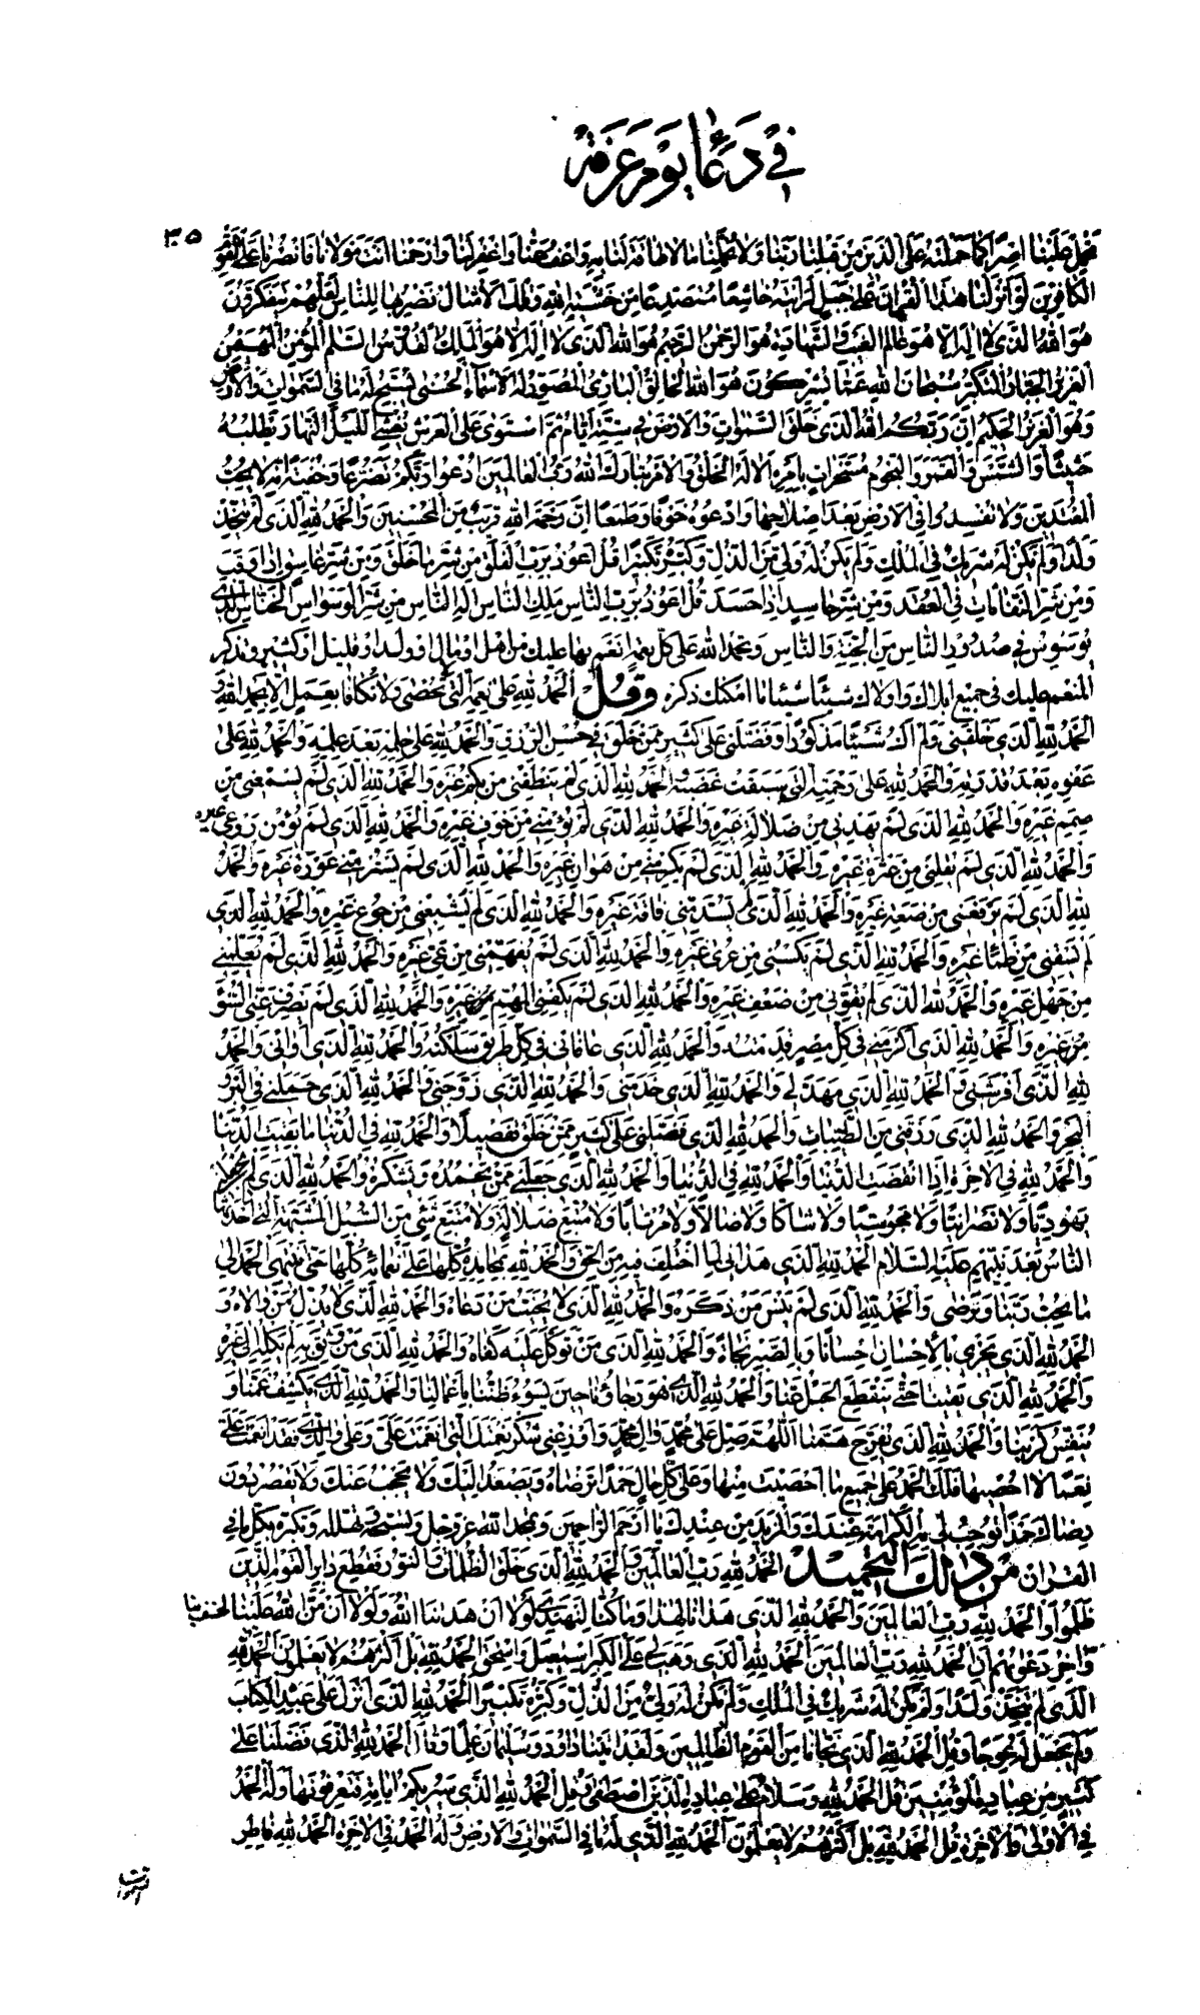 في دعاء يوم عرفة
٣٠٥
تحمل علينا اصرا كما حملته على الذين من قبلنا ربنا ولا تحملنا ما لا طاقة لنا به واعف عنا واغفر لنا وارحمنا انت مولانا فانصرنا على القوم
الكافرين لو انزلنا هذا القران على جبل لرايته خاشعا متصدعا من خشية الله وتلك الامثال نضربها للناس لعلهم يتفكرون
هو الله الذى لا اله الا هو عالم الغيب والشهادة هو الرحمن الرحيم هو الله الذى لا اله الا هو الملك القدوس السلم المؤمن المهيمن
العزيز الجبار المتكبر سبحان الله عما يشركون هو الله الخالق البارئ المصور له الاسماء الحسنى يسبح له ما في السموات والارض
وهو العزيز الحكيم ان ربكم الله الذى خلق السموات والارض في ستة ايام ثم استوى على العرش يغشي الليل النهار يطلبه
حثيثا والشمس والقمر والنجوم مسخرات بامره الا له الخلق والامر تبارك الله رب العالمين ادعوا ربكم تضرعا وخفية انه لا يحب
المعتدين ولا تفسدوا في الارض بعد اصلاحها وادعوه خوفا وطمعا ان رحمة الله قريب من المحسنين والحمد لله الذى لم يتخذ
ولدا ولم يكن له شريك في الملك ولم يكن له ولي من الذل وكبره تكبيرا قل اعوذ برب الفلق من شر ما خلق ومن شر غاسق اذا وقب
ومن شر النفاثات في العقد ومن شر حاسد اذا حسد قل اعوذ برب الناس ملك الناس اله الناس من شر الوسواس الخناس الذي
يوسوس في صدور الناس من الجنة والناس وتحمد الله على كل نعمة انعم بها عليك من اهل او مال او ولد او قليل او كثير وتذكر
المنعم عليك في جميع ابلاك واولاك شيئا شيئا ما امكنك ذكره وقل الحمد لله على نعمه التى لا تحصى ولا تكافا بعمل الا بحمد الله و
الحمد لله الذي خلقني ولم اك شيئا مذكورا وفضلني على كثير ممن خلق في حسن الرزق والحمد لله على حلمه بعد علمه والحمد لله على
عفوه بعد قدرته والحمد لله على رحمته التي سبقت غضبه الحمد لله الذى لم ينطقني من بكم غيره والحمد لله الذى لم يسمعني من
صمم غيره والحمد لله الذى لم يهدني من ضلالة غيره والحمد لله الذى لم يؤمني من خوف غيره والحمد لله الذى لم يؤمن روعي غيره
والحمد لله الذي لم يقلني من عثرة غيره والحمد لله الذى لم يكرمني من هوان غيره والحمد لله الذى لم يستر مني عورة غيره والحمد
لله الذى لم يرفعني من ضعة غيره والحمد لله الذى لم يسد مني فاقة غيره والحمد لله الذى لم يشبعني من جوع غيره والحمد لله الذي
لم يسقني من ظمأ غيره والحمد لله الذى لم يكسني من عرى غيره والحمد لله الذى لم يفهمني من عى غيره والحمد لله الذى لم يعلمني
من جهل غيره والحمد لله الذى لم يقوني من ضعف غيره والحمد لله الذى لم يكفني المهم غيره والحمد لله الذى لم يصرف عني السوء
غيره والحمد لله الذى اكرمني في كل مصر قدمته والحمد لله الذى عافاني في كل طريق سلكته والحمد لله الذى اواني والحمد
لله الذى افرشني والحمد لله الذى مهد لي والحمد لله الذي خدمني والحمد لله الذى زوجني والحمد لله الذى حملني في البر و
البحر والحمد لله الذى رزقني من الطيبات والحمد لله الذى فضلني على كثير ممن خلق تفضيلا والحمد لله في الدنيا ما بقيت الدنيا
والحمد لله في الاخرة اذا انقضت الدنيا والحمد لله في الدنيا والحمد لله الذى جعلني ممن يحمده ويشكره والحمد لله الذى لم يجعلني
يهوديا ولا نصرانيا ولا مجوسيا ولا شاكا ولا ضالا ولا مرتابا ولا متبع ضلالة ولا متبع شئ من السبل المشتبهة التي احدثها
الناس بعد نبيهم عليه السلام الحمد لله الذى هداني لما اختلف فيه من الحق والحمد لله بمحامده كلها على نعمائه كلها حتى ينتهى الحمد الى
ما يحب ربنا ويرضى والحمد لله الذى لم ينس من ذكره والحمد لله الذى لا يخيب من دعاه والحمد لله الذى لا يذل من والاه و
الحمد لله الذى يجزى بالاحسان احسانا وبالصبر نجاة والحمد لله الذى من توكل عليه كفاه والحمد لله الذى من وثق به لم يكله الى غيره
والحمد لله الذى يعيننا حتى ينقطع الحبل عنا والحمد لله الذى هو رجاؤنا حين يسوء ظننا باعمالنا والحمد لله الذى يكشف غمنا و
ينفس كربنا والحمد لله الذى يفرج همنا اللهم صل على محمد وال محمد واوزعني شكر نعمتك التى انعمت علي وعلى والدي فقد انعمت علي
نعما لا احصيها فلك الحمد على جميع ما احصيت منها وعلى كل حال حمدا ترضاه ويصعد اليك ولا يحجب عنك ولا يقصر دون
رضاك حمدا توجب لي به الكرامة عندك والمزيد من عندك يا ارحم الراحمين وتمجد الله عز وجل وتسبحه وتهلله وتكبره بكل ما في
القران من ذلك التحميد الحمد لله رب العالمين والحمد لله الذى خلق الظلمات والنور فقطع دابر القوم الذين
ظلموا والحمد لله رب العالمين والحمد لله الذى هدانا لهذا وما كنا لنهتدي لولا ان هدانا الله ولولا ان من الله علينا لخسف بنا
واخر دعوىهم ان الحمد لله رب العالمين الحمد لله الذى وهب لي على الكبر اسمعيل واسحق الحمد لله بل اكثرهم لا يعلمون الحمد لله
الذى لم يتخذ ولدا ولم يكن له شريك في الملك ولم يكن له ولي من الذل وكبره تكبيرا الحمد لله الذى انزل على عبده الكتاب
ولم يجعل له عوجا وقل الحمد لله الذى نجانا من القوم الظالمين ولقد اتينا داود وسليمان علما وقالا الحمد لله الذى فضلنا على
كثير من عباده المؤمنين قل الحمد لله وسلام على عباده الذين اصطفى وقل الحمد لله الذى سيريكم اياته فتعرفونها وله الحمد
في الاولى والاخرة وقل الحمد لله بل اكثرهم لا يعلمون الحمد لله الذى له ما في السموات والارض وله الحمد في الاخرة الحمد لله فاطر